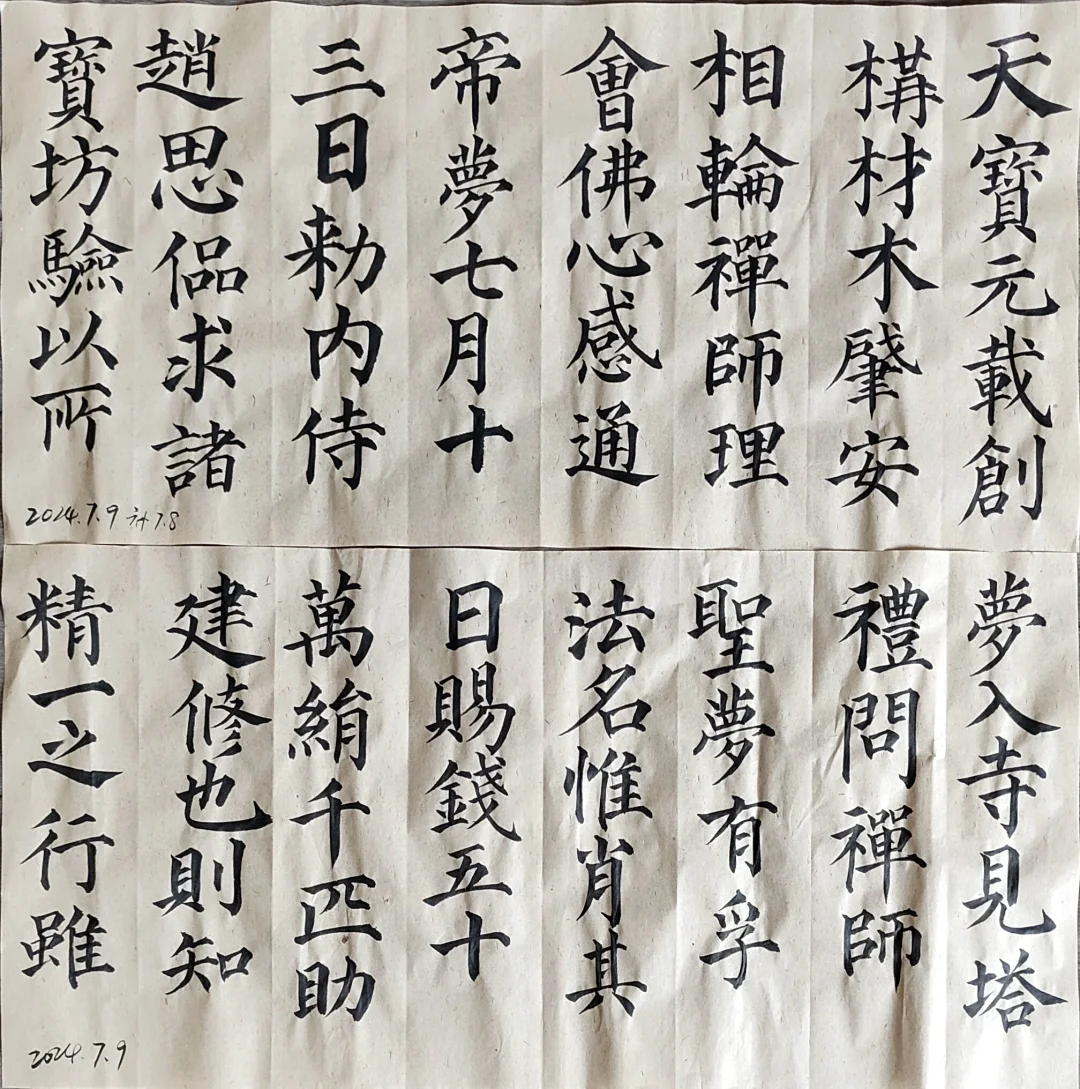 天寶元載創
構材木肇安
相輪禪師理
會佛心感通
帝夢七月十
三日勑内侍
趙思侃求諸
寶坊驗以所
2024.7.9 补7.8
夢入寺見塔
禮問禪師
聖夢有孚
法名惟肖其
日賜錢五十
萬絹千匹助
建修也則知
精一之行雖
2024.7.9